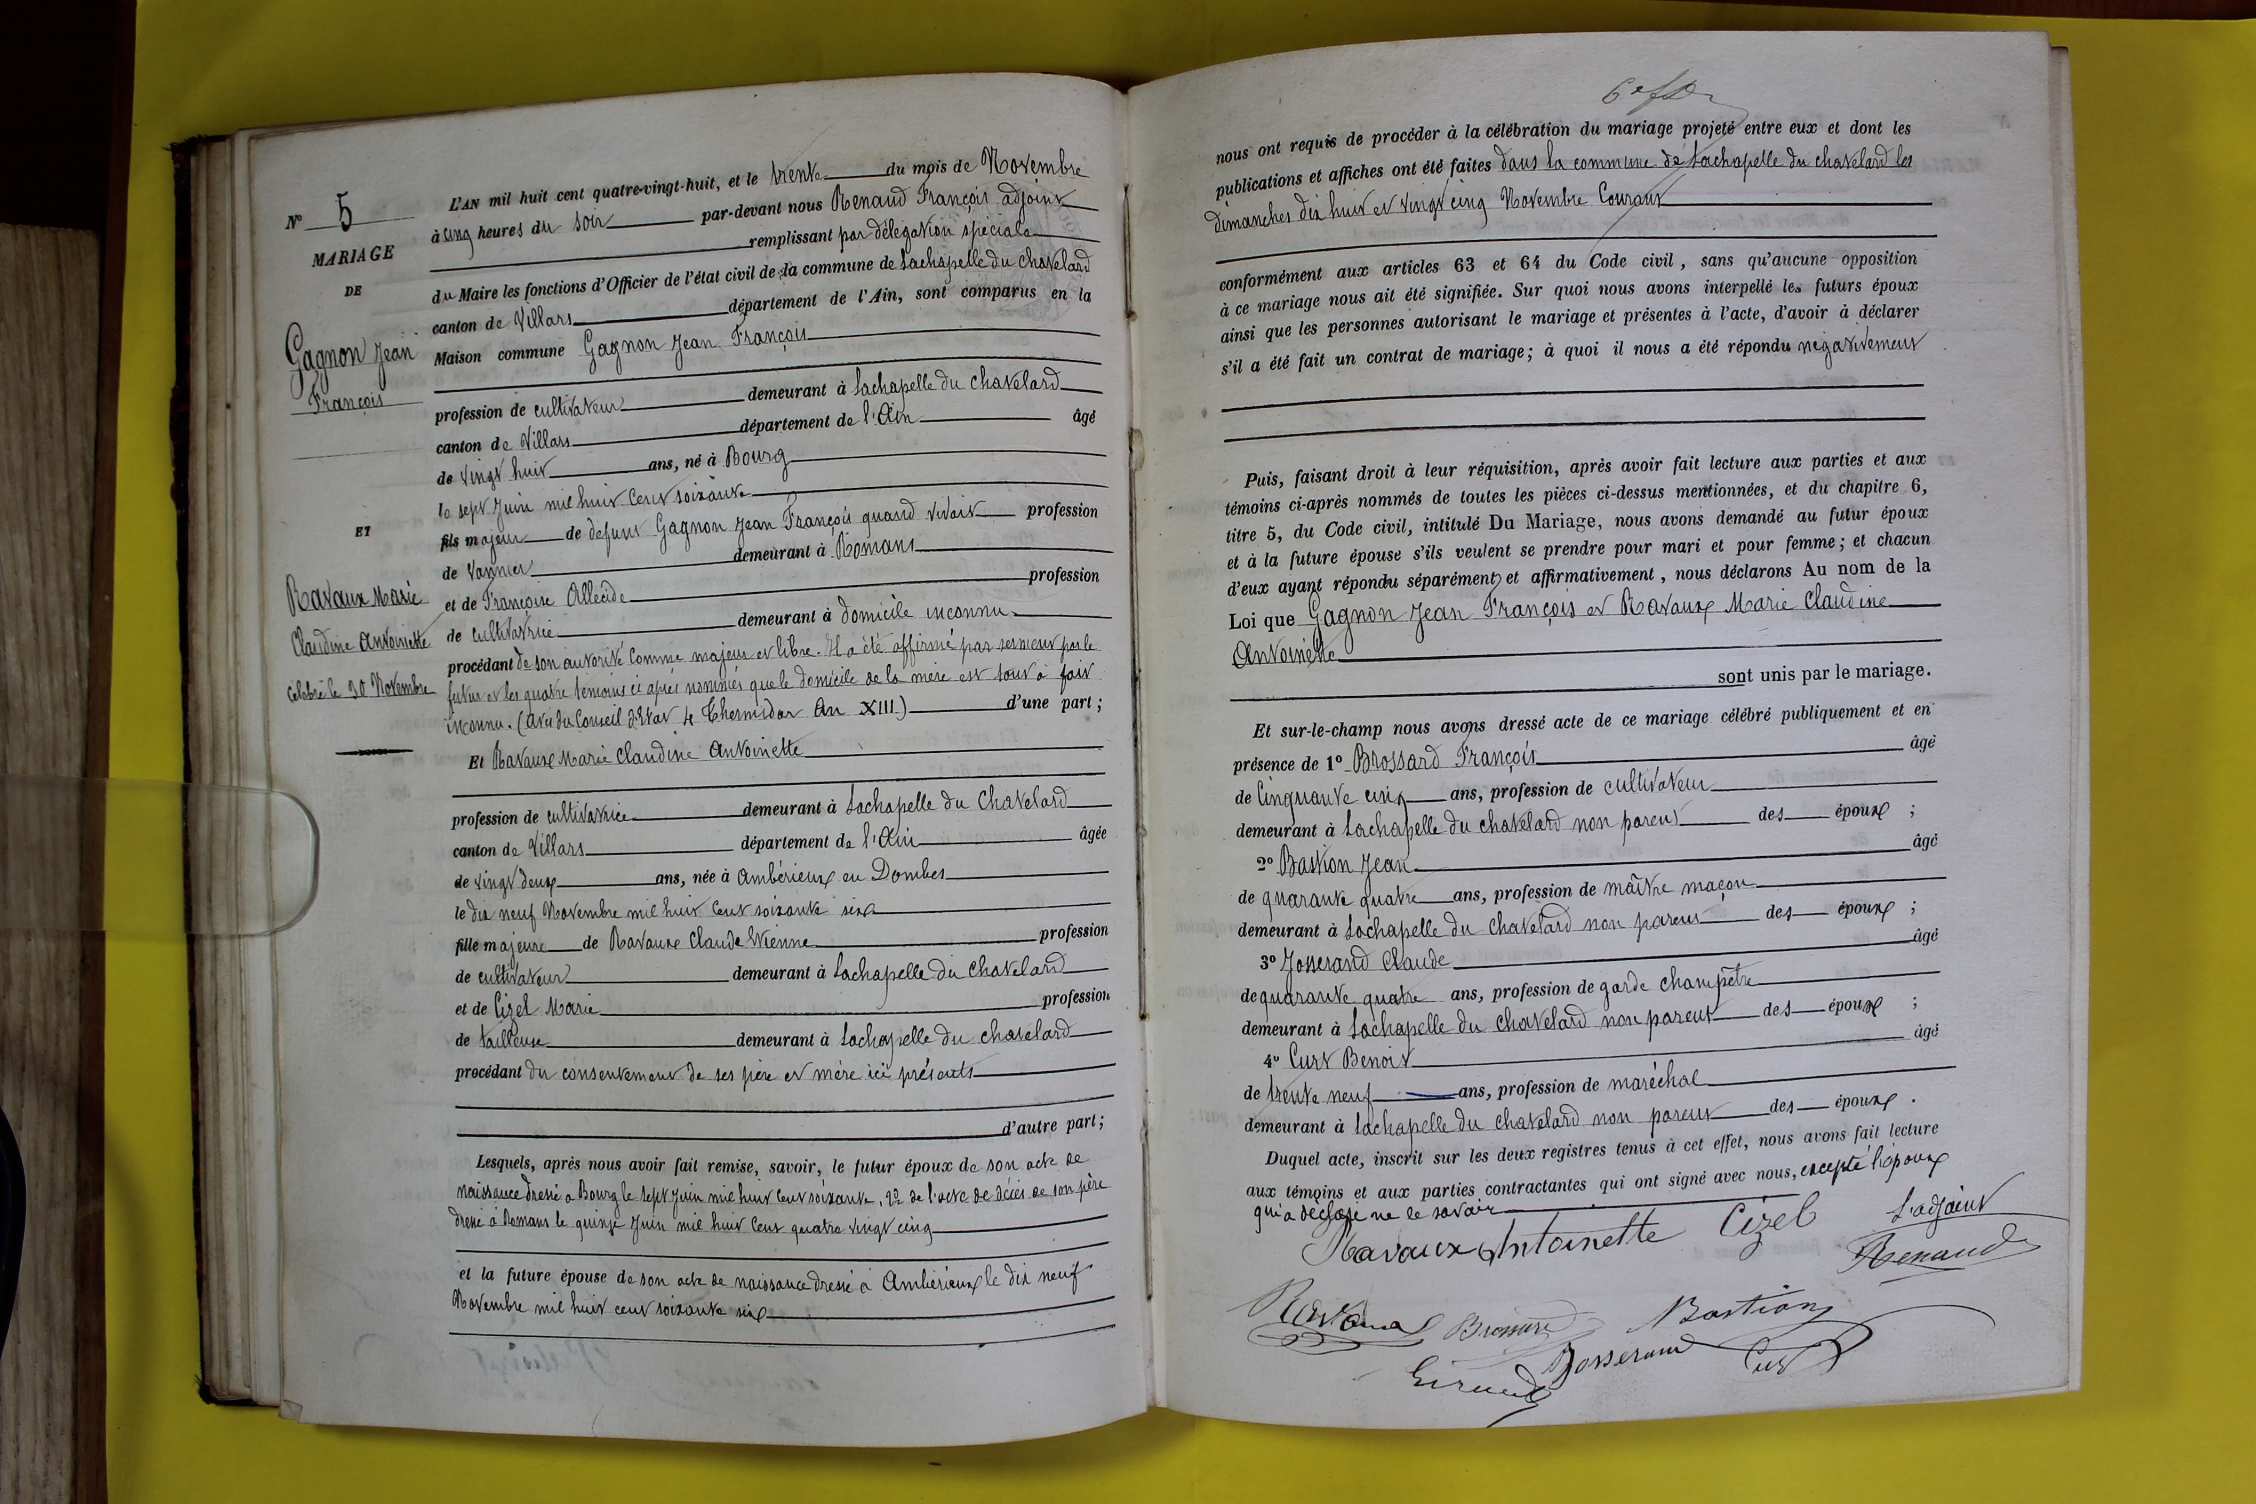 N° 5
MARIAGE
DE
Gagnon Jean
François
ET
Ravaux Marie
Claudine Antoinette
célébré le 30 Novembre
L'AN mil huit cent quatre-vingt-huit, et le trente du mois de Novembre
à cinq heures du soir par-devant nous Renaud François adjoint
remplissant par délégation spéciale
du Maire les fonctions d'Officier de l'état civil de la commune de Lachapelle du Chatelard
canton de Villars département de l'Ain, sont comparus en la
Maison commune Gagnon Jean François
profession de cultivateur demeurant à Lachapelle du Chatelard
canton de Villars département de l'Ain âgé
de vingt huit ans, né à Bourg
le sept Juin mil huit cent soixante
fils majeur de défunt Gagnon Jean François quand vivait profession
de vannier demeurant à Romans
et de Françoise profession
de cultivatrice demeurant à domicile inconnu
procédant de son autorité comme majeur et libre. Il a été affirmé par serment par le
futur et les quatre témoins ci après nommés que le domicile de la mère est tout à fait
inconnu. (avis du Conseil d'Etat 4 Thermidor An XIII) d'une part ;
Et Ravaux Marie Claudine Antoinette
profession de cultivatrice demeurant à Lachapelle du Chatelard
canton de Villars département de l'Ain âgée
de vingt deux ans, née à Ambérieux en Dombes
le dix neuf Novembre mil huit cent soixante six
fille majeure de Ravaux Claude Etienne profession
de cultivateur demeurant à Lachapelle du Chatelard
et de Cizel Marie profession
de tailleuse demeurant à Lachapelle du chatelard
procédant du consentement de ses père et mère ici présents
d'autre part ;
Lesquels, après nous avoir fait remise, savoir, le futur époux de son acte de
naissance dressé à Bourg le sept Juin mil huit cent soixante, 2° de l'acte de décès de son père
dressé à Romans le quinze Juin mil huit cent quatre vingt cinq
et la future épouse de son acte de naissance dressé à Ambérieux le dix neuf
Novembre mil huit cent soixante six
nous ont requis de procéder à la célébration du mariage projeté entre eux et dont les
publications et affiches ont été faites dans la commune de Lachapelle du chatelard les
dimanches dix huit et vingt cinq Novembre Courant
conformément aux articles 63 et 64 du Code civil, sans qu'aucune opposition
à ce mariage nous ait été signifiée. Sur quoi nous avons interpellé les futurs époux
ainsi que les personnes autorisant le mariage et présentes à l'acte, d'avoir à déclarer
s'il a été fait un contrat de mariage ; à quoi il nous a été répondu négativement
Puis, faisant droit à leur réquisition, après avoir fait lecture aux parties et aux
témoins ci-après nommés de toutes les pièces ci-dessus mentionnées, et du chapitre 6,
titre 5, du Code civil, intitulé Du Mariage, nous avons demandé au futur époux
et à la future épouse s'ils veulent se prendre pour mari et pour femme ; et chacun
d'eux ayant répondu séparément et affirmativement, nous déclarons Au nom de la
Loi que Gagnon Jean François et Ravaux Marie Claudine
Antoinette
sont unis par le mariage.
Et sur-le-champ nous avons dressé acte de ce mariage célébré publiquement et en
présence de 1° Brossard François âgé
de cinquante ans, profession de cultivateur
demeurant à Lachapelle du chatelard non parent des époux ;
2° Bastion Jean âgé
de quarante quatre ans, profession de maître maçon
demeurant à Lachapelle du Chatelard non parent des époux ;
3° Josserand Claude âgé
de quarante quatre ans, profession de garde champêtre
demeurant à Lachapelle du Chatelard non parent des époux ;
4° Curt Benoit âgé
de trente neuf ans, profession de maréchal
demeurant à Lachapelle du chatelard non parent des époux.
Duquel acte, inscrit sur les deux registres tenus à cet effet, nous avons fait lecture
aux témoins et aux parties contractantes qui ont signé avec nous, excepté l'époux
qui a déclaré ne le savoir
Ravaux Antoinette Cizel L'adjoint
Renaud
Ravaux Brossard Bastion
Josserand Curt